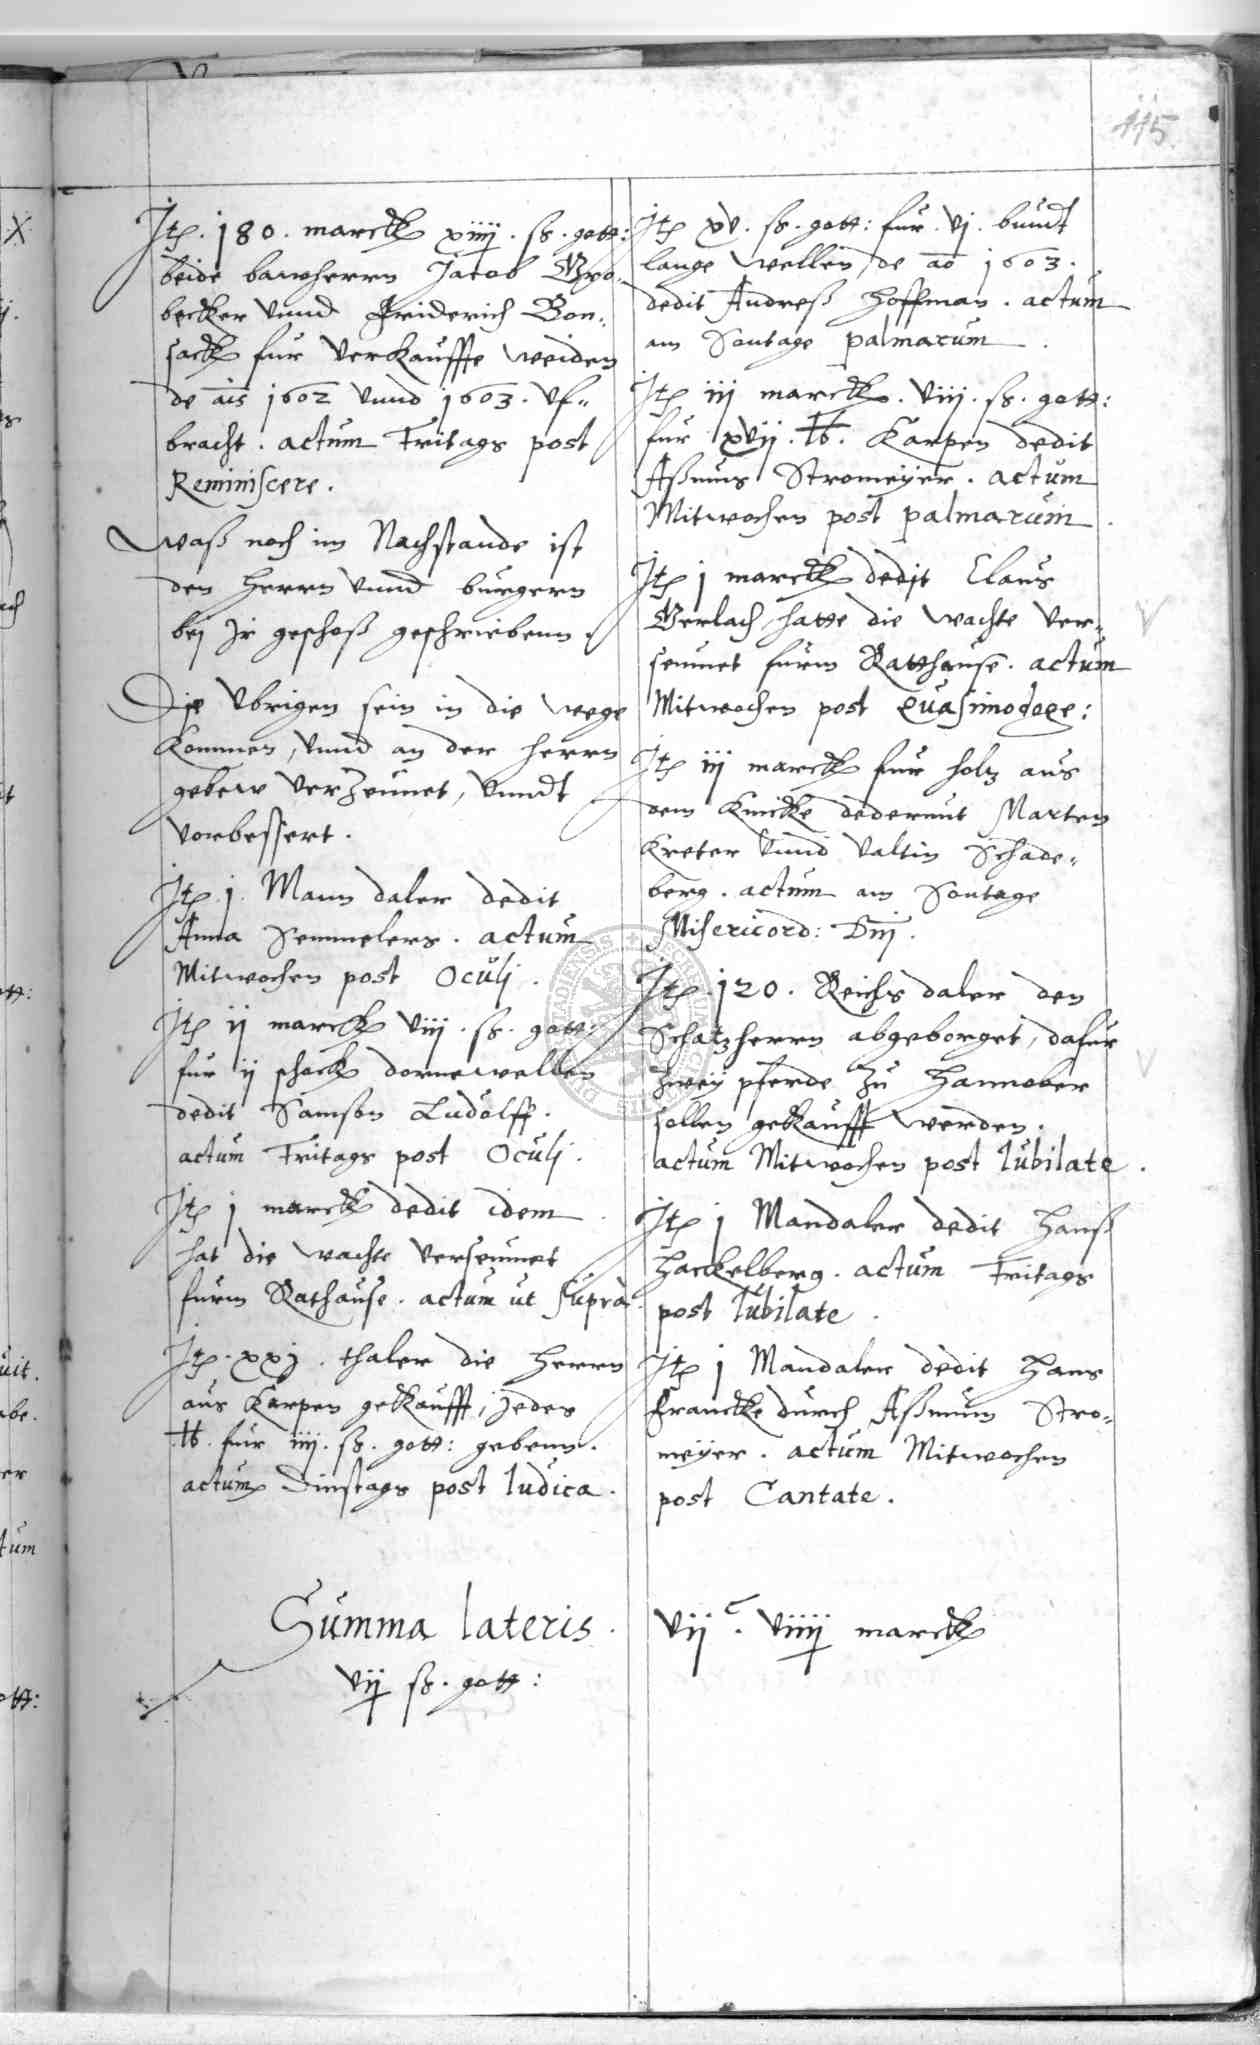 115
Jtē. 180. marckh xiiij. sß. gott:
beide bawherrn Jacob Gro-
becker vnnd Friderich Bon-
sackh fur verkauffte weiden
de ais 1602 vnnd 1603. vf-
bracht. actum Fritags post
Reminiscere.
waß noch im Nachstande ist
den herrn vnnd burgern
bej Jr geschoß geschriebenn.
Die vbrigen sein in die wege
kommen, vnnd an der herrn
gebew verzeunet, vnndt
vorbessert.
Jtē. j. Mann daler dedit
Anna Semmelers. actum
Mitwochen post Oculj.
Jtē ij marckh viij. sß. gott:
fur ij schock dornewellen
dedit Samson Ludolff.
actum Fritags post Oculj.
Jtē j marckh dedit idem
hat die wachte verseumet
furm Rathause. actum ut supra
Jtē. xxj. thaler die herrn
aus Karpen gekaufft, jedes
℔. fur iiij. sß. gott: gebenn.
actum Dinstags post Iudica.
Jtē xv. sß. gott: fur. vj. bundt
lange wellen, de ao 1603.
dedit Andreß Hoffman. actum
am Sontage palmarum.
Jtē iij marckh. viij. sß. gott:
fur xvij. ℔. Karpen dedit
Aßmus Stromeyer. actum
Mitwochen post palmarum.
Jtē j marckh dedit Claus
Gerlach, hatte die wachte ver-
seumet furm Ratthause. actum
Mitwochen post Quasimodoge:
Jtē iij marckh fur holtz aus
dem Knicke dederunt Marten
Kreter vnnd Valtin Schade-
berg. actum am Sontage
Misericord: Dnj.
Jtē. 120. Reichs daler den
Schatzherrn abgeborget, dafur
zwey pferde zu Hannober
sollen gekaufft werden.
actum Mitwochen post Iubilate.
Jtē j Mandaler dedit Hanß
Hackelberg. actum Fritags
post Iubilate.
Jtē j Mandaler dedit Hans
Francke durch Aßmum Stro-
meyer. actum Mitwochen
post Cantate.
Summa lateris. vij c. viiij marckh
vij sß. gott: